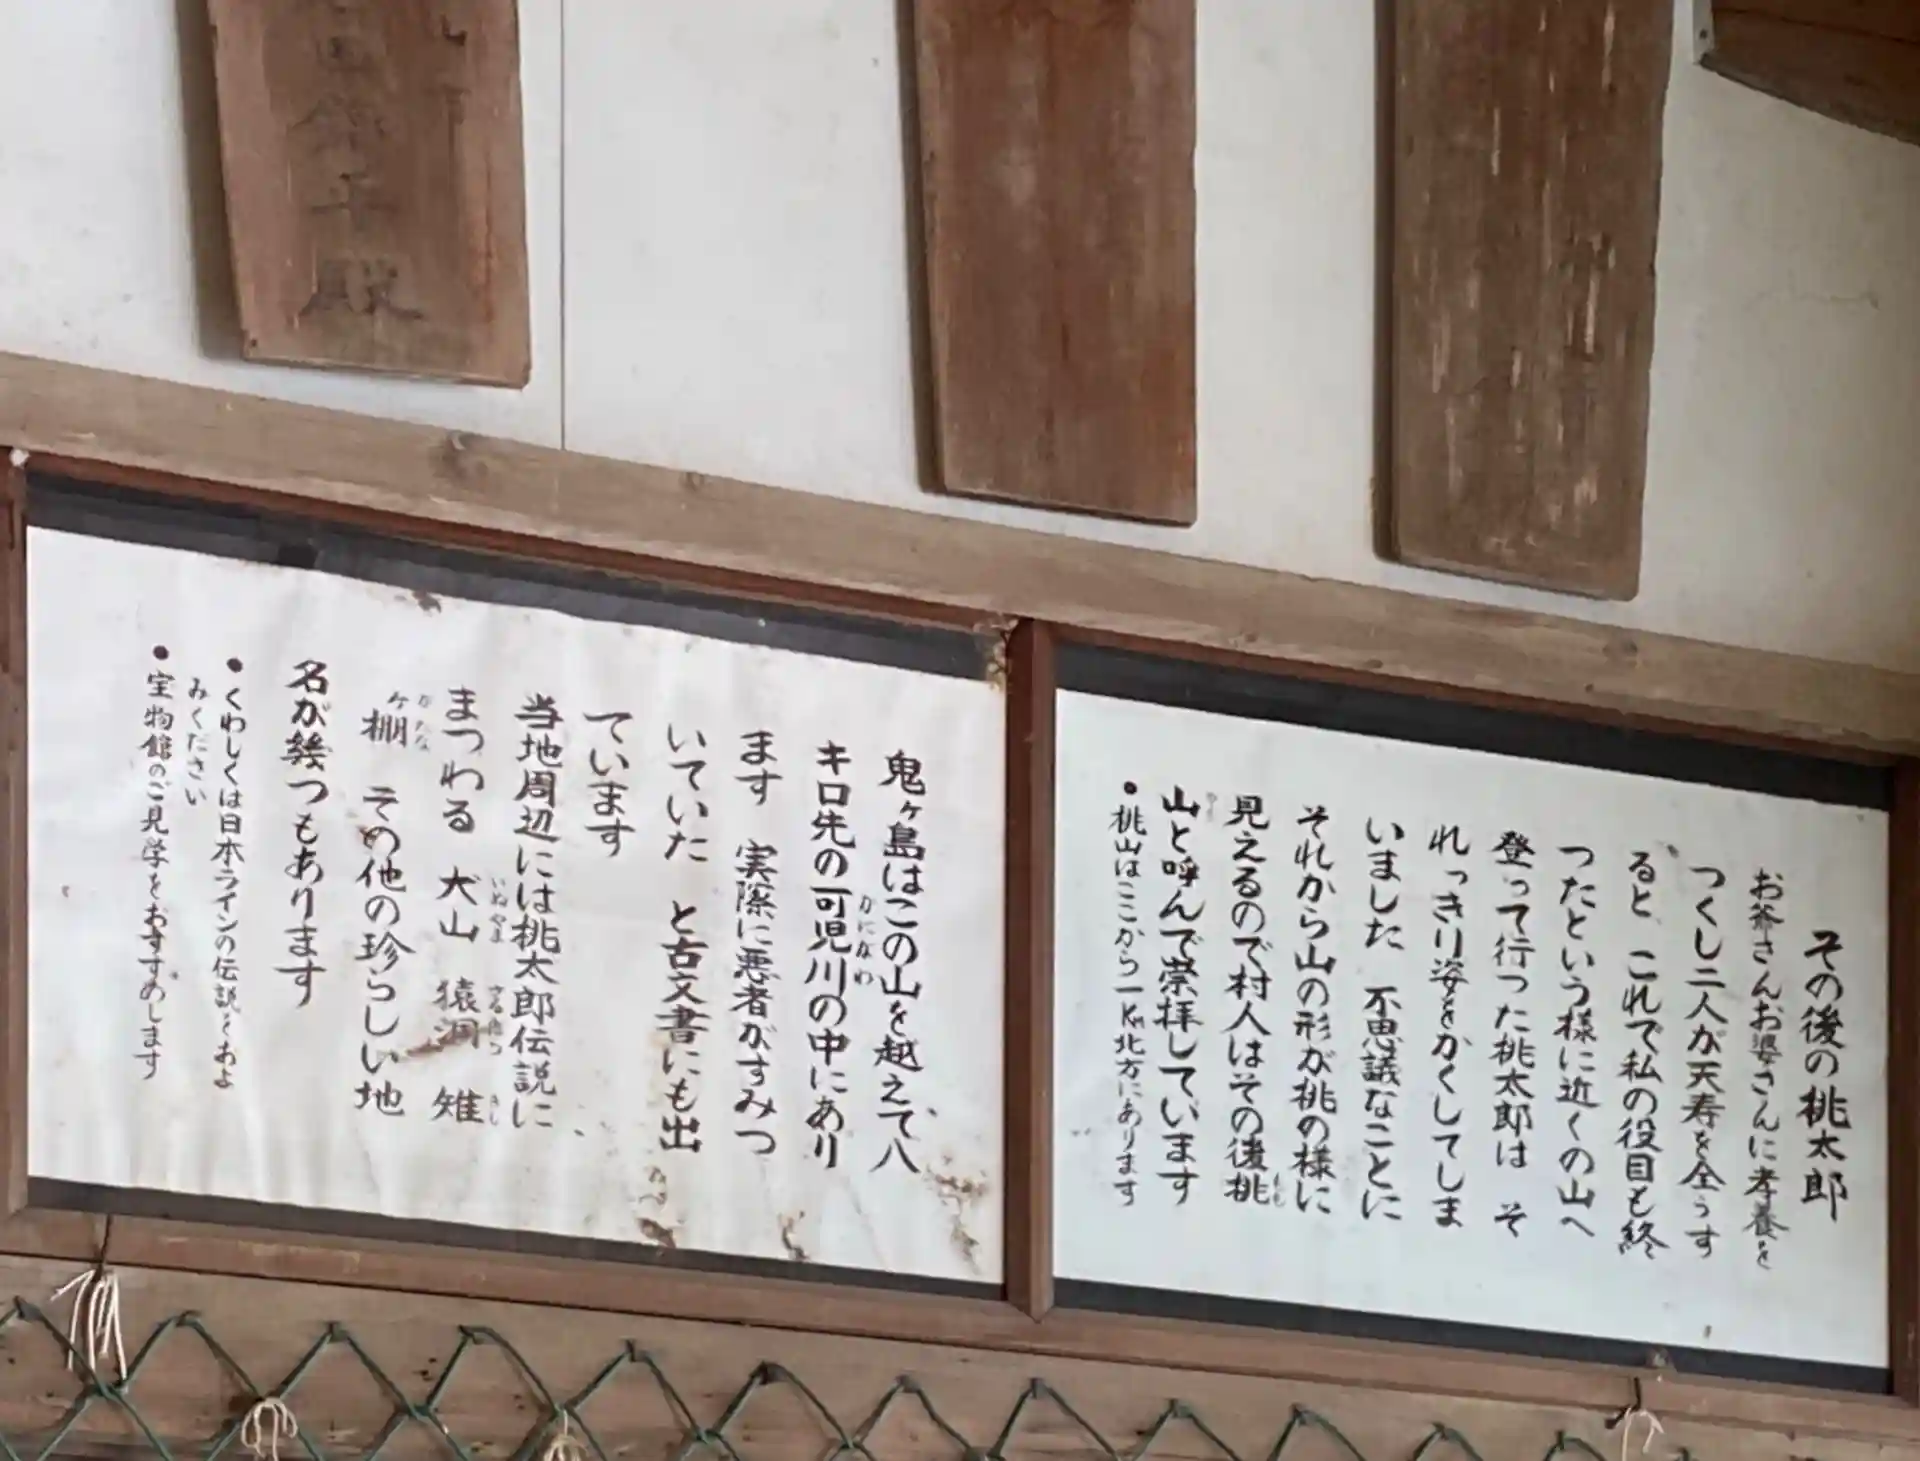 その後の桃太郎
お爺さんお婆さんに孝養を
つくし二人が天寿を全うす
ると これで私の役目も終
つたという様に近くの山へ
登って行った桃太郎は そ
れっきり姿をかくしてしま
いました 不思議なことに
それから山の形が桃の様に
見えるので村人はその後桃
山と呼んで崇拝しています
●桃山はここから一Km北方にあります
鬼ヶ島はこの山を越えて八
キロ先の可児川の中にあり
ます 実際に悪者がすみつ
いていた と古文書にも出
ています
当地周辺には桃太郎伝説に
まつわる 犬山 猿洞 雉
ヶ棚 その他の珍らしい地
名が幾つもあります
●くわしくは日本ラインの伝説をおよ
みください
●宝物館のご見学をおすすめします